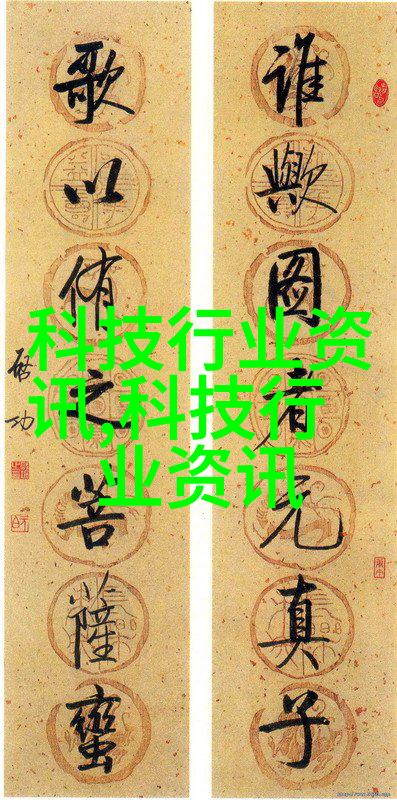 谁歟图者元真子
歌以侑之菩薩蠻
启功
科技行业资
讯,科技行
业资讯